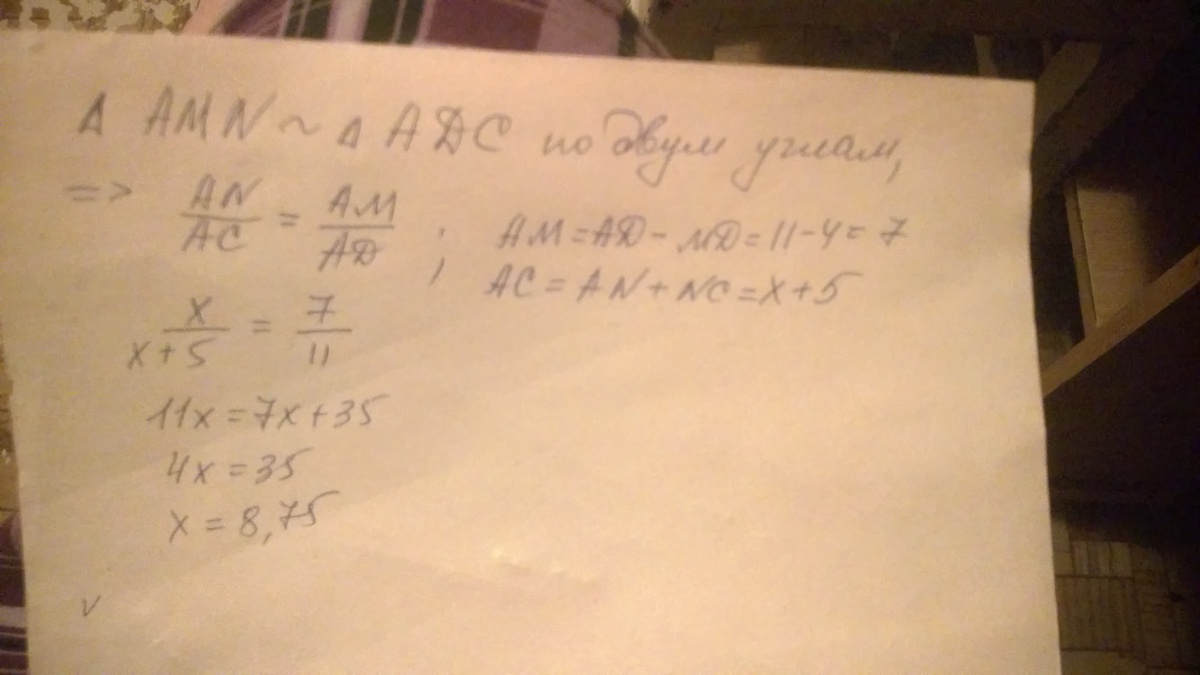 Δ AMN ~ Δ ADC по двум углам,
=> AN/AC = AM/AD ; AM = AD - MD = 11 - 4 = 7
AC = AN + NC = x + 5
x/x+5 = 7/11
11x = 7x + 35
4x = 35
x = 8,75
v